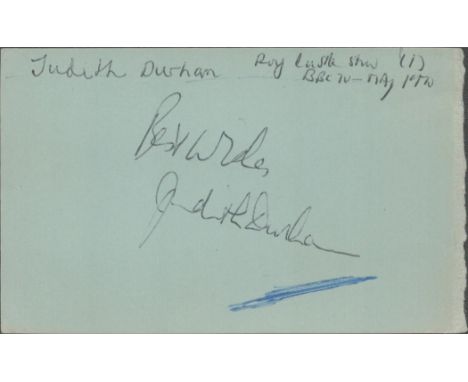 Judith Durham Roy Castle Show (1)
BBC TV - May
Best Wishes
Judith Durham